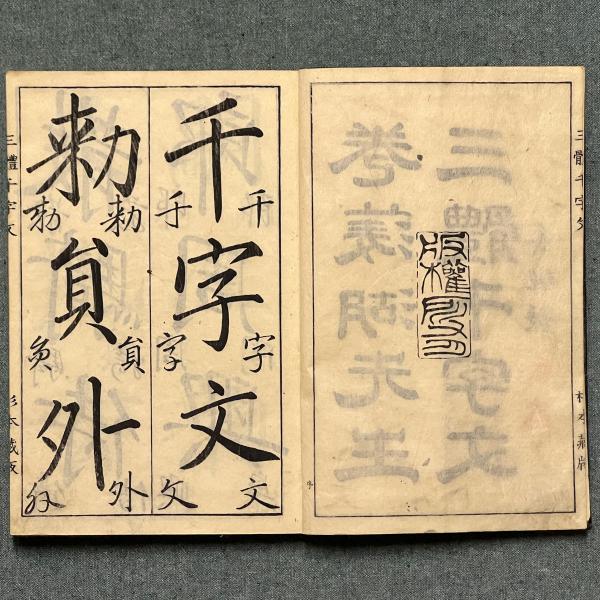 三體千字文
三體千字文
卷菱湖先生
版權所有
千字文
千字文
千字文
勅員外
勅員外
勅員外
三體千字文
杉本蔵版